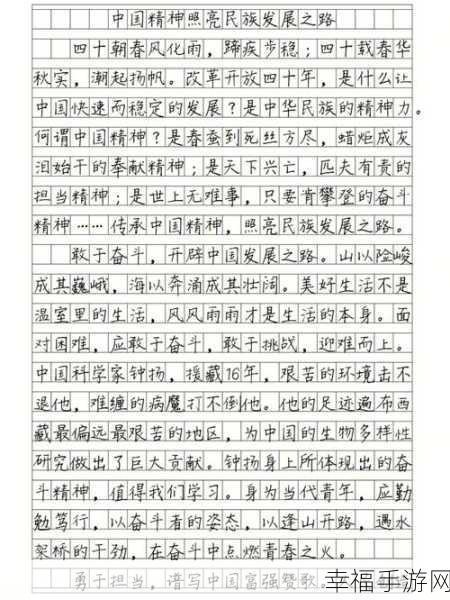 中国精神照亮民族发展之路
四十朝春风化雨，蹄疾步稳；四十载春华
秋实，潮起扬帆。改革开放四十年，是什么让
中国快速而稳定的发展？是中华民族的精神力。
何谓中国精神？是春蚕到死丝方尽，蜡炬成灰
泪始干的奉献精神；是天下兴亡，匹夫有责的
担当精神；是世上无难事，只要肯攀登的奋斗
精神……传承中国精神，照亮民族发展之路。
敢于奋斗，开辟中国发展之路。山以险峻
成其巍峨，海以奔涌成其壮阔。美好生活不是
温室里的生活，风风雨雨才是生活的本身。面
对困难，应敢于奋斗，敢于挑战，迎难而上。
中国科学家钟扬，援藏16年，艰苦的环境击不
退他，难缠的病魔打不倒他。他的足迹遍布西
藏最偏远最艰苦的地区，为中国的生物多样性
研究做出了巨大贡献。钟扬身上所体现出的奋
斗精神，值得我们学习。身为当代青年，应勤
勉笃行，以奋斗者的姿态，以逢山开路，遇水
架桥的干劲，在奋斗中点燃青春之火。
勇于担当，谱写中国富强赞歌。
幸福手游网